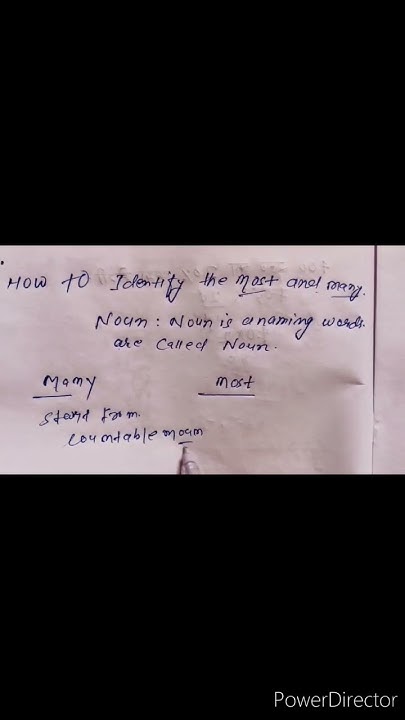 How to Identify the most and many.
Noun : Noun is a naming words
are called Noun.
Many most
start from
countable noun
PowerDirector